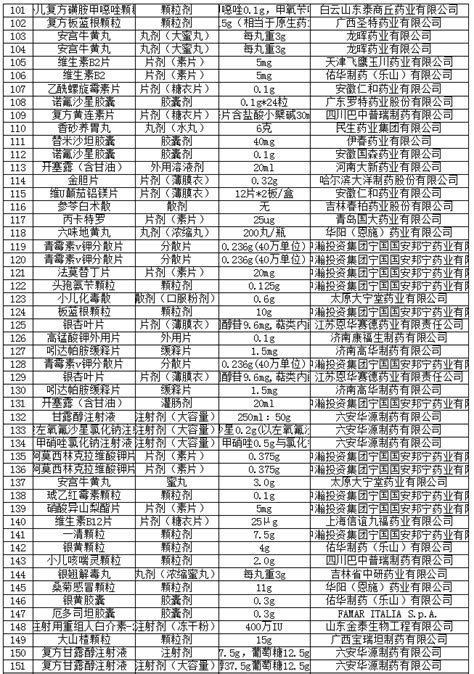 101 儿复方磺胺甲噁唑颗粒 颗粒剂 噁唑0.1g，甲氧苄 白云山东泰商丘药业有限公司
102 复方板蓝根颗粒 颗粒剂 .5g（相当于原生药 广西圣特药业有限公司
103 安宫牛黄丸 丸剂（大蜜丸） 每丸重3g 龙晖药业有限公司
104 安宫牛黄丸 丸剂（大蜜丸） 每丸重3g 龙晖药业有限公司
105 维生素B2片 片剂（素片） 5mg 天津飞鹰玉川药业有限公司
106 维生素B2 片剂（素片） 5mg 佑华制药（乐山）有限公司
107 乙酰螺旋霉素片 片剂（糖衣片） 0.1g 安徽仁和药业有限公司
108 诺氟沙星胶囊 胶囊剂 0.1g*24粒 广东罗特药业股份有限公司
109 复方黄连素片 片剂（糖衣片） 片含盐酸小檗碱30m 四川巴中普瑞制药有限公司
110 香砂养胃丸 丸剂（水丸） 6克 民生药业集团有限公司
111 替米沙坦胶囊 胶囊剂 40mg 伊春药业有限公司
112 诺氟沙星胶囊 胶囊剂 0.1g 安徽国森药业有限公司
113 开塞露（含甘油） 外用溶液剂 20ml 河南大新药业有限公司
114 金胆片 片剂（薄膜衣） 0.32g 哈尔滨大洋制药股份有限公司
115 维U颠茄铝镁片 片剂（薄膜衣） 12片*2板/盒 安徽仁和药业有限公司
116 参苓白术散 散剂 无 吉林春柏药业股份有限公司
117 丙卡特罗 片剂（素片） 25ug 青岛国大药业有限公司
118 六味地黄丸 丸剂（浓缩丸） 200丸/瓶 华阳（恩施）药业有限公司
119 青霉素v钾分散片 分散片 0.236g(40万单位) 瀚投资集团宁国国安邦宁药业有
120 青霉素v钾分散片 分散片 0.236g(40万单位) 瀚投资集团宁国国安邦宁药业有
121 法莫替丁片 片剂（素片） 20mg 瀚投资集团宁国国安邦宁药业有
122 头孢氨苄颗粒 颗粒剂 0.125g 瀚投资集团宁国国安邦宁药业有
123 小儿化毒散 散剂（口服粉剂） 0.6g 太原大宁堂药业有限公司
124 板蓝根颗粒 颗粒剂 10g 瀚投资集团宁国国安邦宁药业有
125 银杏叶片 片剂（薄膜衣） 醇苷9.6mg,萜类内 江苏恩华赛德药业有限责任公司
126 高锰酸钾外用片 外用片 0.1g 济南康福生制药有限公司
127 吲达帕胺缓释片 缓释片 1.5mg 济南高华制药有限公司
128 青霉素v钾分散片 分散片 0.236g(40万单位) 瀚投资集团宁国国安邦宁药业有
129 银杏叶片 片剂（薄膜衣） 醇苷9.6mg,萜类内 江苏恩华赛德药业有限责任公司
130 吲达帕胺缓释片 缓释片 1.5mg 济南高华制药有限公司
131 开塞露（含甘油） 灌肠剂 20ml 瀚投资集团宁国国安邦宁药业有
132 甘露醇注射液 注射剂（大容量） 250ml：50g 六安华源制药有限公司
133 左氧氟沙星氯化钠注 注射剂（大容量） 星0.2g(以左氧氟沙 六安华源制药有限公司
134 甲硝唑氯化钠注射液 注射剂（大容量） 甲硝唑0.5g与氯化 六安华源制药有限公司
135 阿莫西林克拉维酸钾片 片剂（素片） 0.375g 瀚投资集团宁国国安邦宁药业有
136 阿莫西林克拉维酸钾片 片剂（素片） 0.375g 瀚投资集团宁国国安邦宁药业有
137 安宫牛黄丸 蜜丸 3.0g 太原大宁堂药业有限公司
138 琥乙红霉素颗粒 颗粒剂 0.1g 瀚投资集团宁国国安邦宁药业有
139 硝酸异山梨酯片 片剂（素片） 5mg 瀚投资集团宁国国安邦宁药业有
140 维生素B12片 片剂（糖衣片） 25μg 上海信谊九福药业有限公司
141 一清颗粒 颗粒剂 7.5g 瀚投资集团宁国国安邦宁药业有
142 银黄颗粒 颗粒剂 4g 佑华制药（乐山）有限公司
143 小儿咳喘灵颗粒 颗粒剂 2.0g 四川巴中普瑞制药有限公司
144 银翘解毒丸 丸剂（浓缩蜜丸） 每丸重3g 吉林省中研药业有限公司
145 桑菊感冒颗粒 颗粒剂 11g 华阳（恩施）药业有限公司
146 银黄胶囊 胶囊剂 0.3g 佑华制药（乐山）有限公司
147 厄多司坦胶囊 胶囊剂 0.3g FAMAR ITALIA S.p.A.
148 注射用重组人白介素- 注射剂（冻干粉） 400万IU 山东金泰生物工程有限公司
149 大山楂颗粒 颗粒剂 15g 广西宝瑞坦制药有限公司
150 复方甘露醇注射液 注射剂 7.5g，葡萄糖12.5g 六安华源制药有限公司
151 复方甘露醇注射液 注射剂（大容量） 醇37.5g葡萄糖12.5g 六安华源制药有限公司